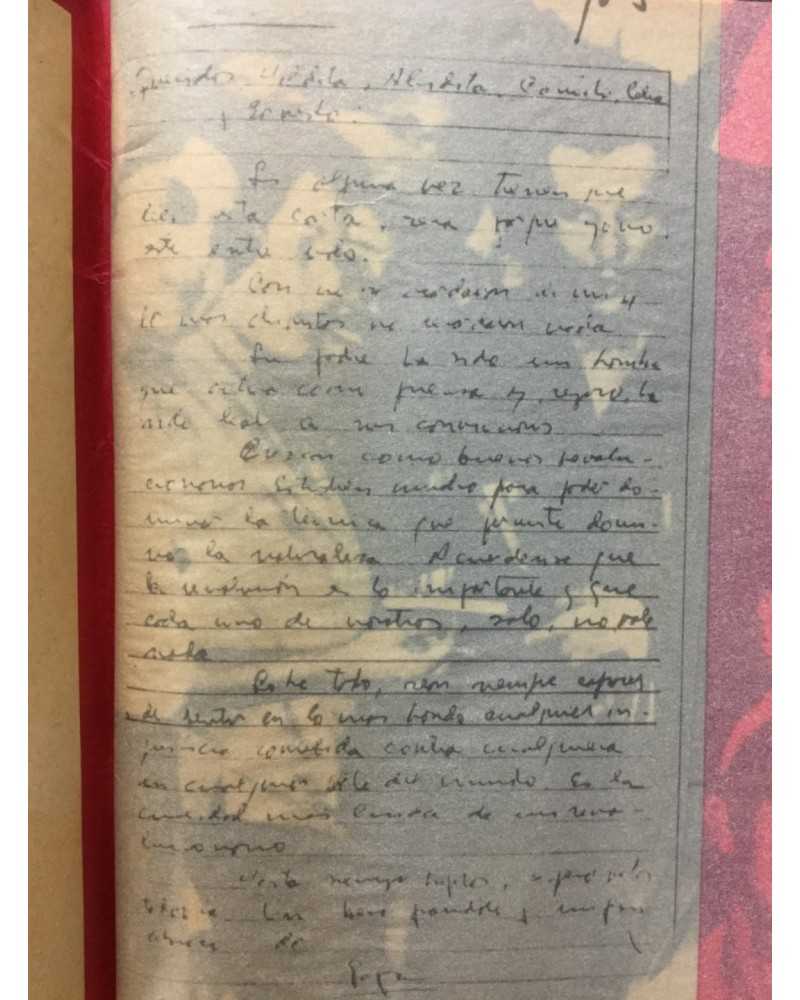 Queridos Hildita, Aleidita, Camilo, Celia
y Ernesto:
Si alguna vez tienen que
leer esta carta, será porque yo no
esté entre Uds.
Casi no se acordarán de mi y
los más chiquitos no recordarán nada
Su padre ha sido un hombre
que actúa como piensa y, seguro, ha
sido leal a sus convicciones
Crezcan como buenos revolu-
cionarios. Estudien mucho para poder do-
minar la técnica que permite domi-
nar la naturaleza. Acuérdense que
la revolución es lo importante y que
cada uno de nosotros, solo, no vale
nada
Sobre todo, sean siempre capaces
de sentir en lo más hondo cualquier in-
justicia cometida contra cualquiera
en cualquier parte del mundo. Es la
cualidad más linda de un revo-
lucionario
Hasta siempre hijitos, espero verlos
todavía. Un beso grandote y un gran
abrazo de
Papá